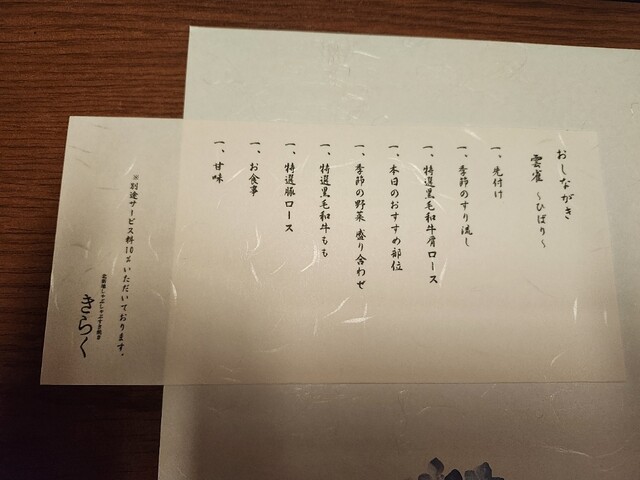 おしながき
雲雀 〜ひばり〜
一、先付け
一、季節のすり流し
一、特選黒毛和牛肩ロース
一、本日のおすすめ部位
一、季節の野菜 盛り合わせ
一、特選黒毛和牛もも
一、特選豚ロース
一、お食事
一、甘味
※別途サービス料10%いただいております。
しゃぶしゃぶすき焼き
きらく